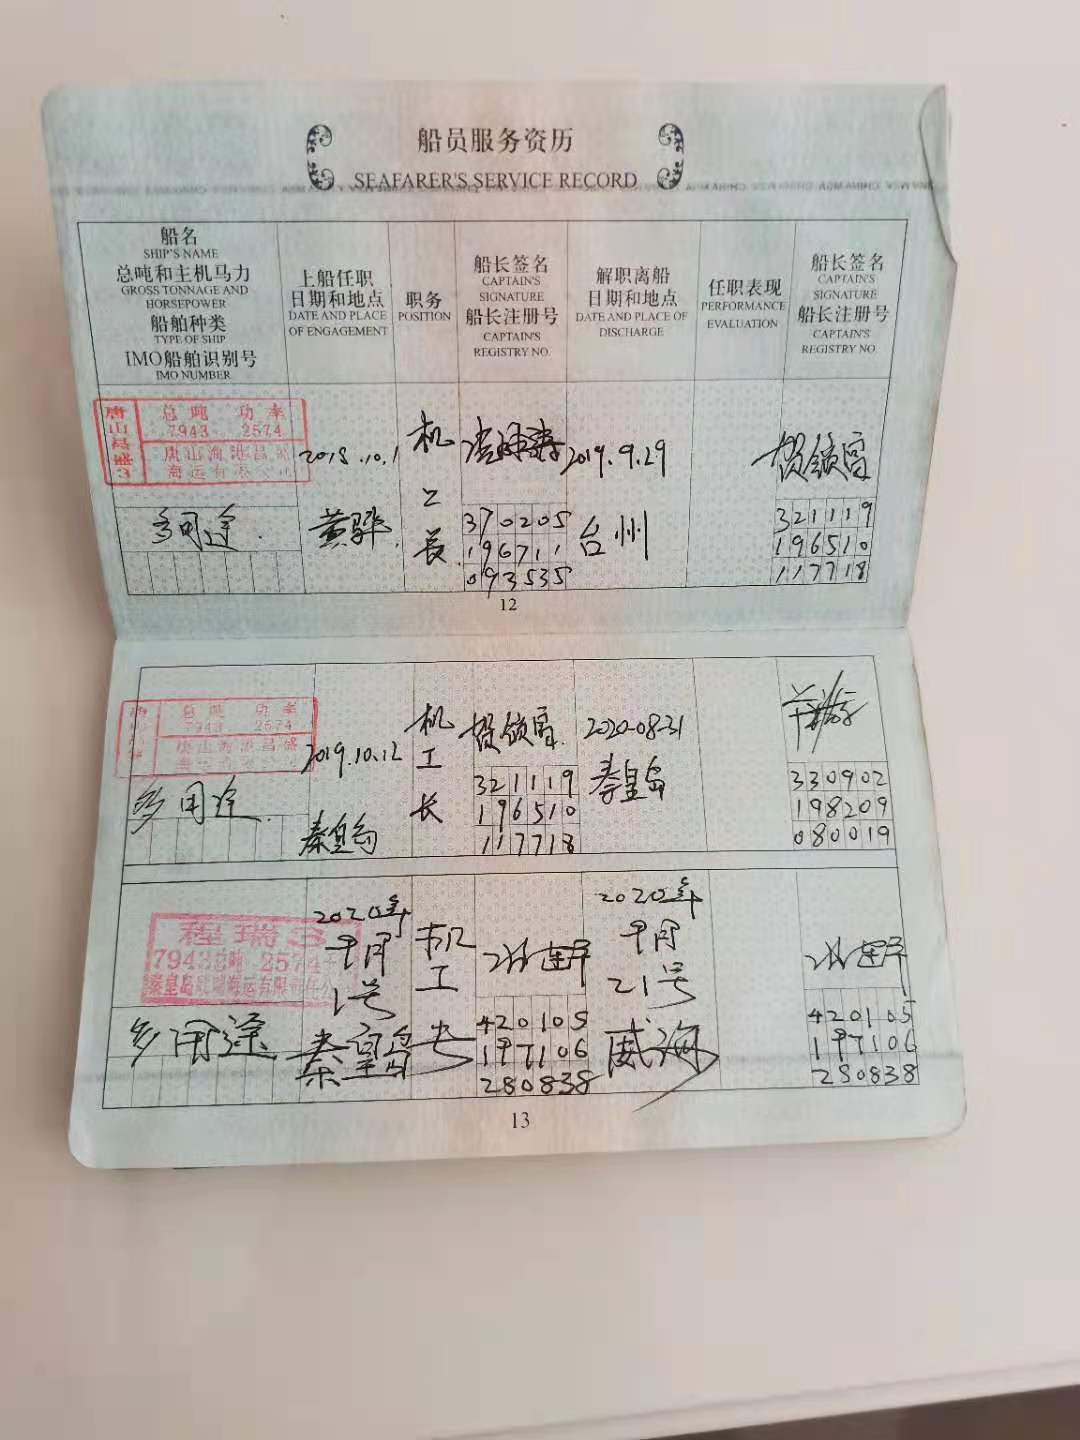 船员服务资历
SEAFARER'S SERVICE RECORD
船名
SHIP'S NAME
总吨和主机马力
GROSS TONNAGE AND
HORSEPOWER
船舶种类
TYPE OF SHIP
IMO船舶识别号
IMO NUMBER
上船任职
日期和地点
DATE AND PLACE
OF ENGAGEMENT
职务
POSITION
船长签名
CAPTAIN'S
SIGNATURE
船长注册号
CAPTAIN'S
REGISTRY NO.
解职离船
日期和地点
DATE AND PLACE OF
DISCHARGE
任职表现
PERFORMANCE
EVALUATION
船长签名
CAPTAIN'S
SIGNATURE
船长注册号
CAPTAIN'S
REGISTRY NO.
唐山
总吨 功率
7943 2574
唐山海港昌
海运有限公司
多用途
2018.10.1
黄骅
机
工
长
370205
196711
093535
2019.9.29
台州
贺锁富
321119
196510
117718
12
总吨 功率
7943 2574
唐山海港昌盛
多用途
2019.10.12
秦皇岛
机
工
长
贺锁富
321119
196510
117718
2020-08-31
秦皇岛
330902
198209
080019
程瑞
7943总吨 2574
秦皇岛 海运有限责任公
多用途
2020年
9月
1号
秦皇岛
机
工
长
420105
197106
280838
2020年
9月
21号
威海
420105
197106
280838
13